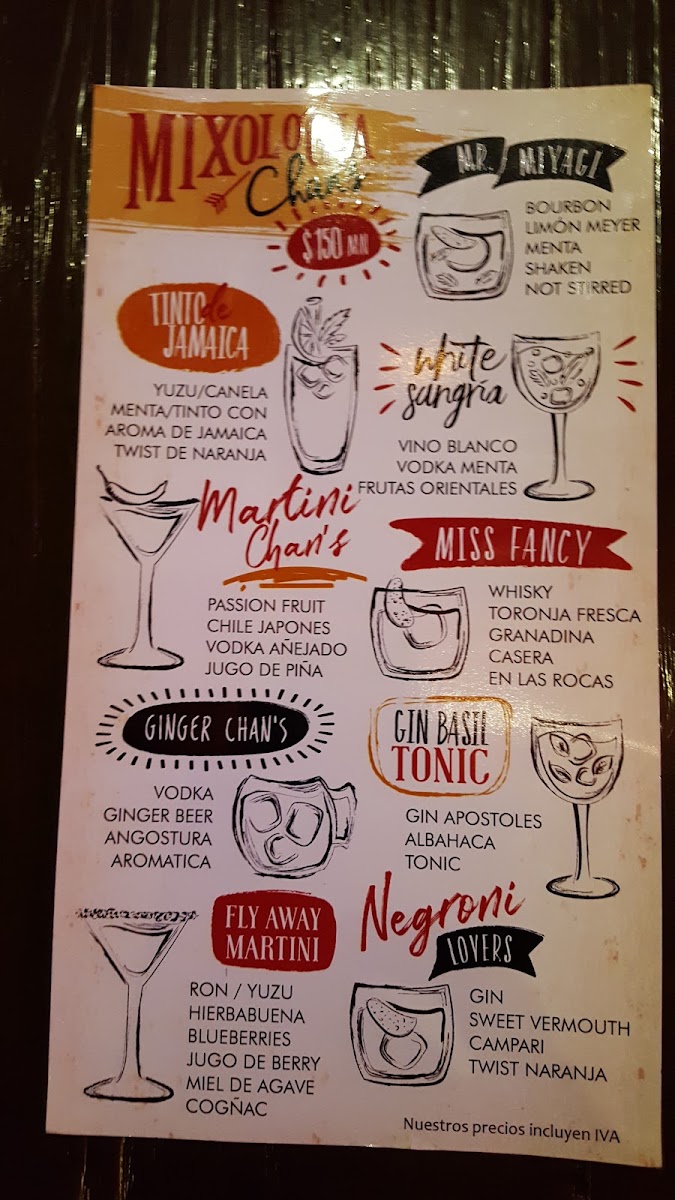 MIXOLOGIA
Chan's
$150 M.N
MR. MIYAGI
BOURBON
LIMÓN MEYER
MENTA
SHAKEN
NOT STIRRED
TINTO de
JAMAICA
YUZU/CANELA
MENTA/TINTO CON
AROMA DE JAMAICA
TWIST DE NARANJA
white
sangría
VINO BLANCO
VODKA MENTA
FRUTAS ORIENTALES
Martini
Chan's
PASSION FRUIT
CHILE JAPONES
VODKA AÑEJADO
JUGO DE PIÑA
MISS FANCY
WHISKY
TORONJA FRESCA
GRANADINA
CASERA
EN LAS ROCAS
GINGER CHAN'S
VODKA
GINGER BEER
ANGOSTURA
AROMATICA
GIN BASIL
TONIC
GIN APOSTOLES
ALBAHACA
TONIC
FLY AWAY
MARTINI
RON / YUZU
HIERBABUENA
BLUEBERRIES
JUGO DE BERRY
MIEL DE AGAVE
COGÑAC
Negroni
LOVERS
GIN
SWEET VERMOUTH
CAMPARI
TWIST NARANJA
Nuestros precios incluyen IVA